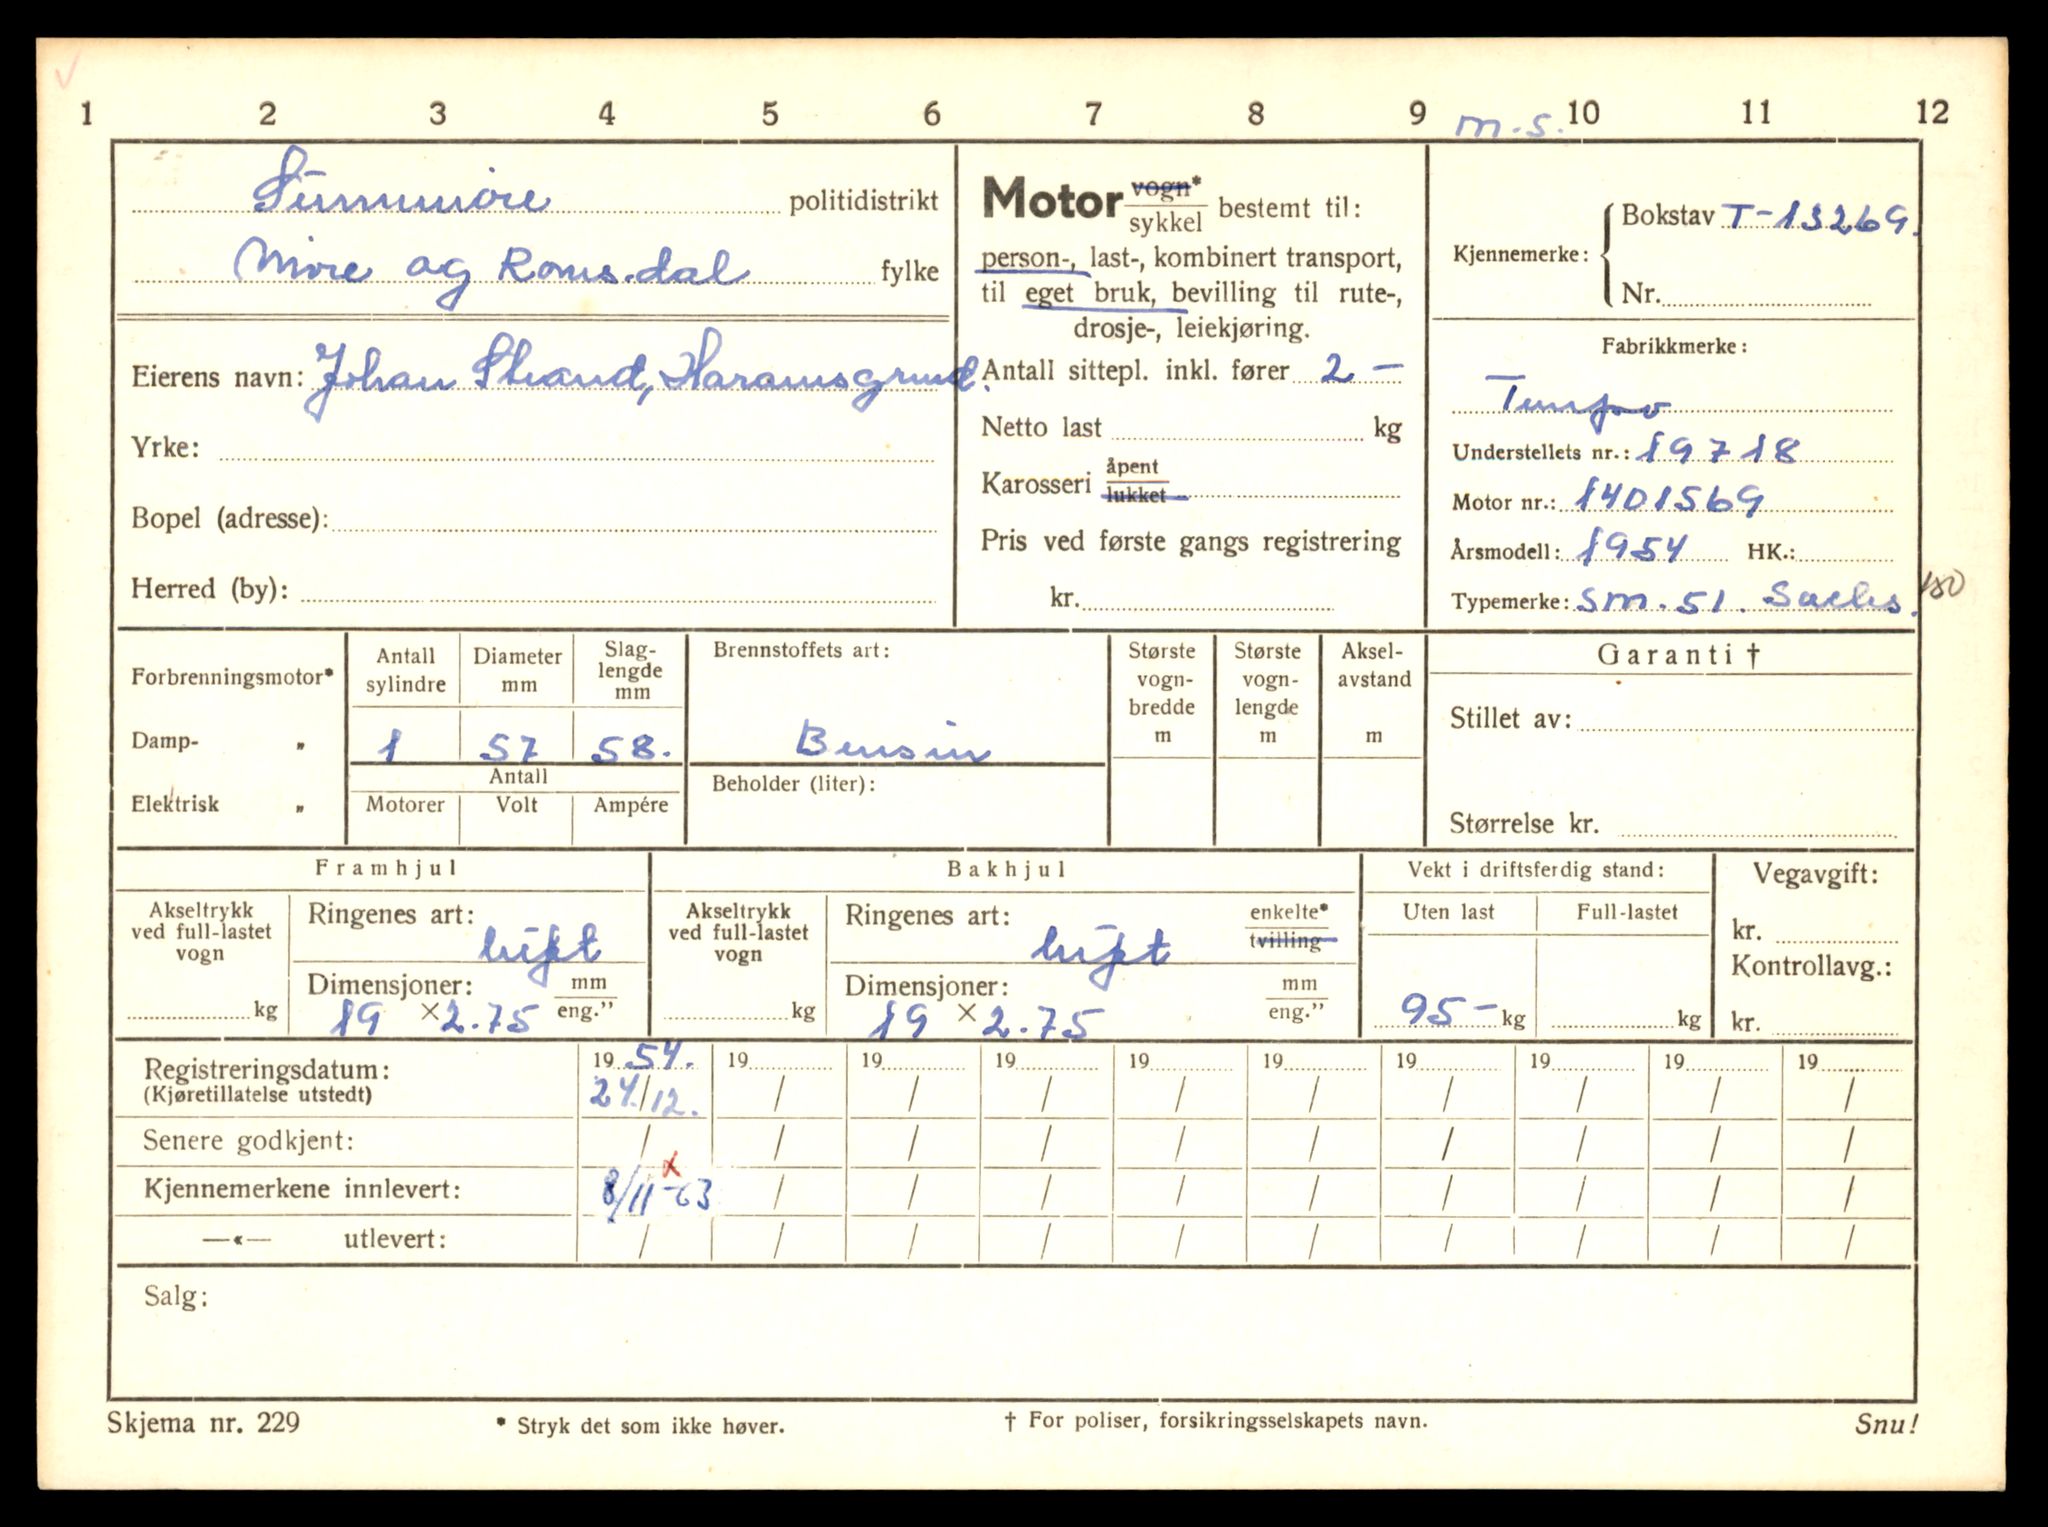 1 2 3 4 5 6 7 8 9 10 11 12
m.s.
Sunnmöre politidistrikt
Möre og Romsdal fylke
Eierens navn: Johan Strand, Haramsgrend.
Yrke:
Bopel (adresse):
Herred (by):
Motor vogn* / sykkel bestemt til:
person-, last-, kombinert transport,
til eget bruk, bevilling til rute-,
drosje-, leiekjøring.
Antall sittepl. inkl. fører 2 –
Netto last kg
Karosseri åpent / lukket
Pris ved første gangs registrering
kr.
Kjennemerke: Bokstav T-13269.
Nr.
Fabrikkmerke:
Tempo
Understellets nr.: 19718
Motor nr.: 1401569
Årsmodell: 1954 HK.:
Typemerke: Sm. 51. Sachs. 150
Forbrenningsmotor*
Damp- „
Elektrisk „
Antall sylindre
Diameter mm
Slag-lengde mm
1 57 58.
Antall
Motorer Volt Ampére
Brennstoffets art:
Bensin
Beholder (liter):
Største vogn-bredde m
Største vogn-lengde m
Aksel-avstand m
Garanti †
Stillet av:
Størrelse kr.
Framhjul
Akseltrykk ved full-lastet vogn
kg
Ringenes art:
luft
Dimensjoner: mm / eng.”
19 × 2.75
Bakhjul
Akseltrykk ved full-lastet vogn
kg
Ringenes art: enkelte* / tvilling
luft
Dimensjoner: mm / eng.”
19 × 2.75
Vekt i driftsferdig stand:
Uten last Full-lastet
95 – kg kg
Vegavgift:
kr.
Kontrollavg.:
kr.
Registreringsdatum: 19 54. 19 19 19 19 19 19 19 19 19
(Kjøretillatelse utstedt) 24/12. / / / / / / / / /
Senere godkjent: / / / / / / / / / /
Kjennemerkene innlevert: 8/11-63 x / / / / / / / / /
—«— utlevert: / / / / / / / / / /
Salg:
Skjema nr. 229 * Stryk det som ikke høver. † For poliser, forsikringsselskapets navn. Snu!